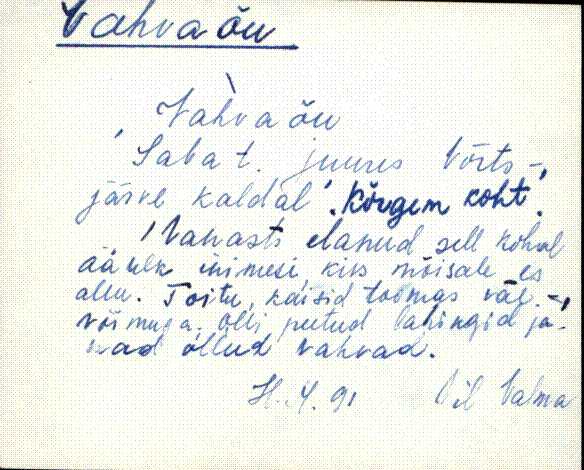 Vahva õu
Vahva õu
Saba t. juures Võrts-
järve kaldal. Kõrgem koht.
Vanasti elanud sell kohal
äärek inimesi, kes mõisale es
allu. Toitu käisid toomas väe-
võimuga. Olli peetud lahingid ja
nad ollud vahvad.
H. 4. 91 Vil Valma